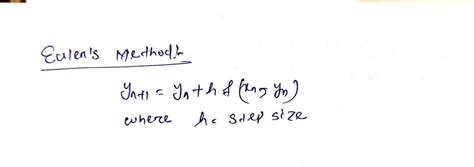 Euler's Method:
yn+1 = yn + h f (xn, yn)
where h = step size